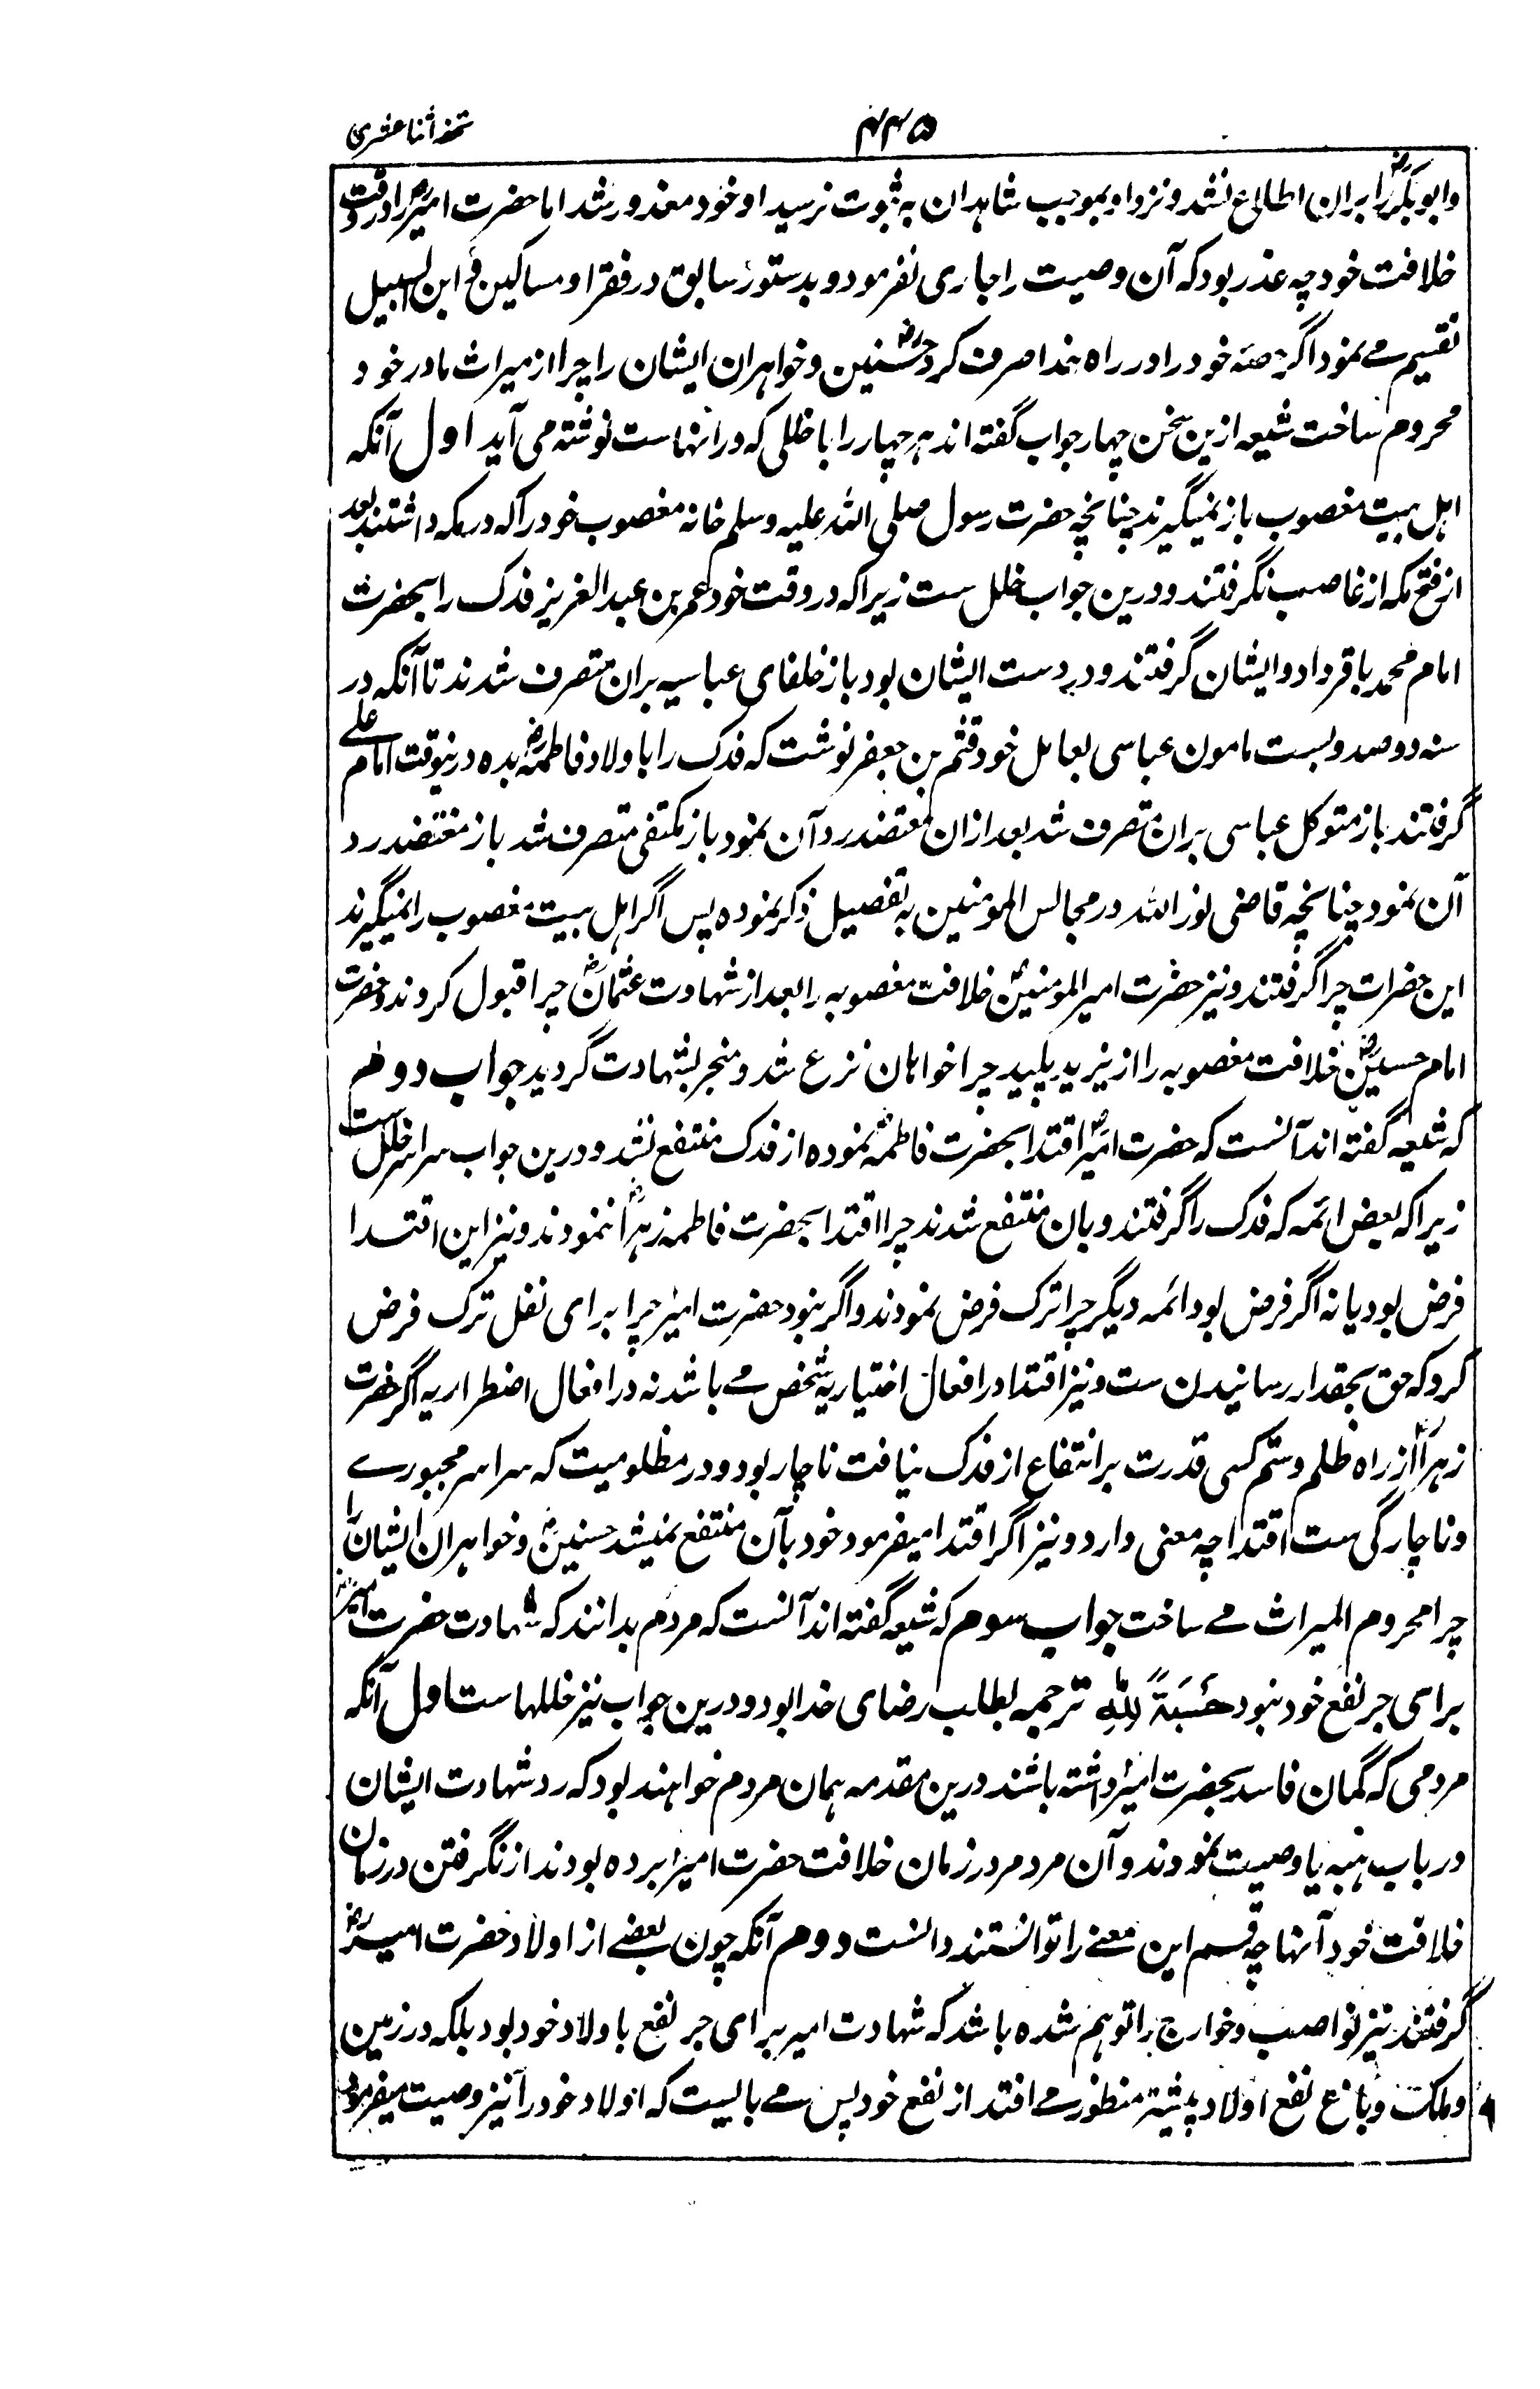 تحفہ اثنا عشری
۴۴۵
و ابوبکرؓ را بران اطلاع نشد و نزد او بموجب شاہدان بہ ثبوت نرسید او خود معذور شد اما حضرت امیرؓ را در وقت
خلافت خود چہ عذر بود کہ آن وصیت را جاری نفرمود و بدستور سابق در فقرا و مساکین و ابن السبیل
تقسیم مے نمود اگر حصہ خود را در راہ خدا صرف کرد حسنینؓ و خواہران ایشان را چرا از میراث مادر خود
محروم ساخت شیعہ ازین سخن چہار جواب گفتہ اند ہر چہار را با خللی کہ در انہاست نوشتہ می آید اول آنکہ
اہل بیت مغصوب باز نمیگیرند چنانچہ حضرت رسول صلی اللہ علیہ وسلم خانہ مغصوب خود را کہ در مکہ داشتند بعد
از فتح مکہ از غاصب نگرفتند و درین جواب خلل ست زیرا کہ در وقت خود عمر بن عبد العزیز فدک را بحضرت
امام محمد باقر داد و ایشان گرفتند و در دست ایشان بود باز خلفای عباسیہ بران متصرف شدند تا آنکہ در
سنہ دو صد و بست مامون عباسی بعامل خود قثم بن جعفر نوشت کہ فدک را باولاد فاطمہؓ بدہ درینوقت امام علی
گرفتند باز متوکل عباسی بران متصرف شد بعد ازان معتضد رد آن نمود باز مکتفی متصرف شد باز مقتضد رد
آن نمود چنانچہ قاضی نور اللہ در مجالس المومنین بہ تفصیل ذکر نمودہ پس اگر اہل بیت مغصوب را نمیگیرند
این حضرات چرا گرفتند و نیز حضرت امیر المومنینؓ خلافت مغصوبہ را بعد از شہادت عثمانؓ چرا قبول کردند و حضرت
امام حسینؓ خلافت مغصوبہ را از یزید پلید چرا خواہان نزع شد و منجر بشہادت گردید جواب دوم
کہ شیعہ گفتہ اند آنست کہ حضرت امیرؓ اقتدا بحضرت فاطمہؓ نمودہ از فدک منتفع نشد و درین جواب سراسر خلل ست
زیرا کہ بعض ائمہ کہ فدک را گرفتند و بان منتفع شدند چرا اقتدا بحضرت فاطمہ زہراؓ ننمودند و نیز این اقتدا
فرض بود یا نہ اگر فرض بود ائمہ دیگر چرا ترک فرض نمودند و اگر نبود حضرت امیرؓ چرا برای نفل ترک فرض
کرد کہ حق بحقدار رسانیدن ست و نیز اقتدا در افعال اختیاریہ شخص مے باشد نہ در افعال اضطراریہ اگر حضرت
زہراؓ از راہ ظلم و ستم کسی قدرت بر انتفاع از فدک نیافت ناچار بود و در مظلومیت کہ سراسر مجبورے
و ناچارگی ست اقتدا چہ معنی دارد و نیز اگر اقتدا میفرمود خود بآن منتفع نمیشد حسنینؓ و خواہران ایشان را
چرا محروم المیراث مے ساخت جواب سوم کہ شیعہ گفتہ اند آنست کہ مردم بدانند کہ شہادت حضرت امیرؓ
برای جر نفع خود نبود حَسَبَةً لِلّٰهِ ترجمہ بطلب رضای خدا بود و درین جواب نیز خللہاست اول آنکہ
مردمی کہ گمان فاسد بحضرت امیرؓ داشتہ باشند درین مقدمہ ہمان مردم خواہند بود کہ رد شہادت ایشان
در باب ہبہ یا وصیت نمودند و آن مردم در زمان خلافت حضرت امیرؓ مردہ بودند از نگرفتن در زمان
خلافت خود آنہا چہ قسم این معنے را توانستند دانست دوم آنکہ چون بعضے از اولاد حضرت امیرؓ
گرفتند نیز نواصب و خوارج را توہم شدہ باشد کہ شہادت امیر برای جر نفع باولاد خود بود بلکہ در زمین
و ملک و باغ نفع اولاد بیشتر منظور مے افتد از نفع خود پس مے بایست کہ اولاد خود را نیز وصیت میفرمود